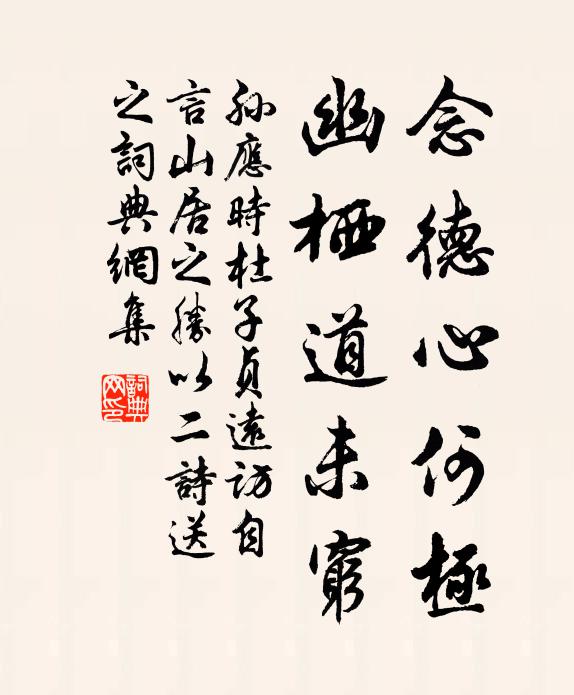 念德心何極
幽栖道未窮
孙應時杜子貞遠訪自
言山居之勝以二詩送
之詞典網集
詞典網印